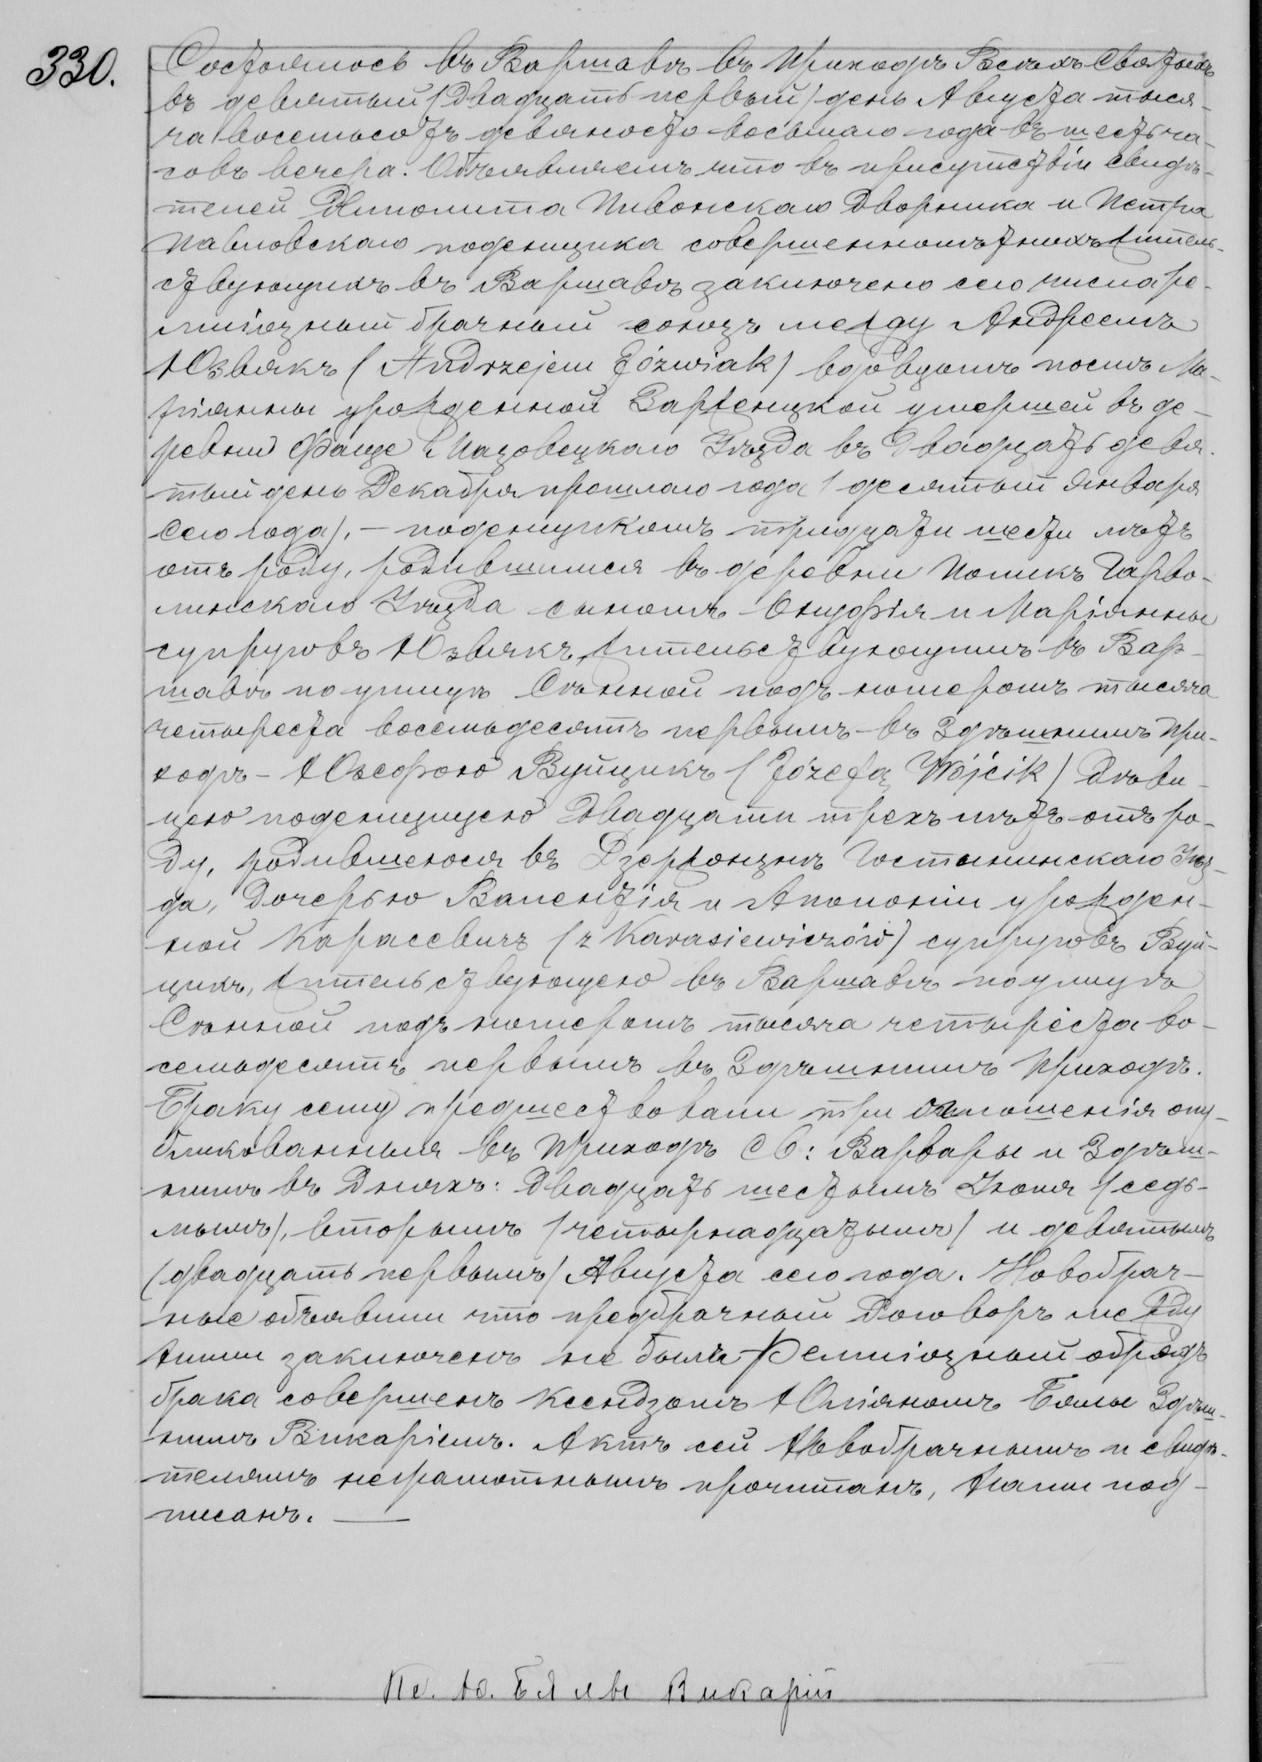 330.
Состоялось въ Варшавѣ въ приходѣ Всѣхъ Святыхъ
въ девятый (двадцать первый) день Августа тыся-
ча восемьсотъ девяносто восьмаго года въ шесть ча-
совъ вечера. Объявляемъ что въ присутствіи свидѣ-
телей Ипполита Пивонскаго дворника и Петра
Павловскаго поденщика совершеннолѣтнихъ житель-
ствующихъ въ Варшавѣ заключено сего числа ре-
лигіозный брачный союзъ между Андреемъ
Юзвякъ (Andrzejem Jóźwiak) вдовцомъ послѣ Ма-
ріянны урожденной Заржецкой умершей въ де-
ревни Фаще Мазовецкаго Уѣзда въ двадцать девя-
тый день Декабря прошлаго года (десятый Января
сего года), – поденщикомъ тридцати шести лѣтъ
отъ роду, родившимся въ деревни Поликъ Гарво-
линскаго Уѣзда сыномъ Онуфрія и Маріянны
супруговъ Юзвякъ, жительствующимъ въ Вар-
шавѣ по улицѣ Сѣнной подъ номеромъ тысяча
четыреста восемьдесятъ первымъ – въ Здѣшнимъ при-
ходѣ – Юзефою Вуйцикъ (Józefą Wójcik) дѣви-
цею поденщицею двадцати трехъ лѣтъ отъ ро-
ду, родившеюся въ Дзержонзнѣ Гостынинскаго Уѣз-
да, дочерью Валентія и Аполоніи урожден-
ной Карасевичъ (z Karasiewiczów) супруговъ Вуй-
цикъ, жительствующею въ Варшавѣ по улицѣ
Сѣнной подъ номеромъ тысяча четыреста во-
семьдесятъ первымъ въ Здѣшнимъ приходѣ.
Браку сему предшествовали три оглашенія опу-
бликованныя въ приходѣ Св: Варвары и Здѣш-
нимъ въ дняхъ: двадцать шестымъ Іюля (седь-
мымъ), вторымъ (четырнадцатымъ) и девятымъ
(двадцать первымъ) Августа сего года. Новобрач-
ные объявили что предбрачный договоръ между
ними заключенъ не былъ. Религіозный обрядъ
брака совершенъ Ксендзомъ Юліяномъ Бялы Здѣш-
нимъ Викаріемъ. Актъ сей Новобрачнымъ и свидѣ-
телямъ неграмотнымъ прочитанъ, Нами под-
писанъ. —
Кс. Ю. Бялы Викарій